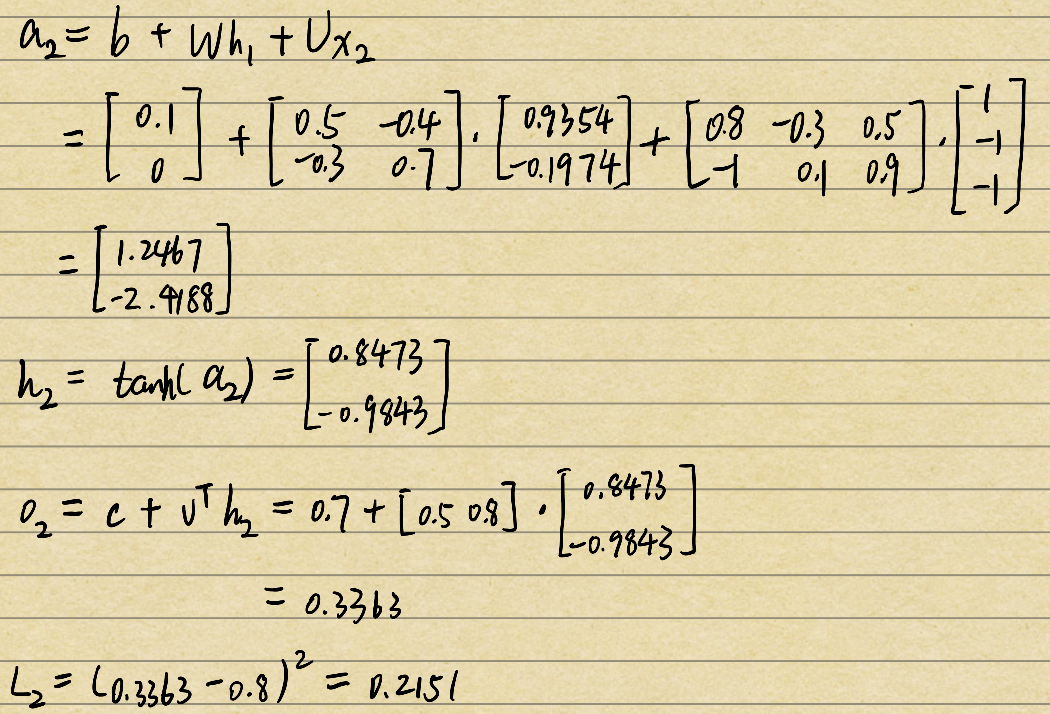 a₂ = b + Wh₁ + Ux₂
= [0.1; 0] + [0.5 -0.4; -0.3 0.7] · [0.9354; -0.1974] + [0.8 -0.3 0.5; -1 0.1 0.9] · [1; -1; -1]
= [1.2467; -2.4188]
h₂ = tanh(a₂) = [0.8473; -0.9843]
o₂ = c + vᵀh₂ = 0.7 + [0.5 0.8] · [0.8473; -0.9843]
= 0.3363
L₂ = (0.3363 - 0.8)² = 0.2151